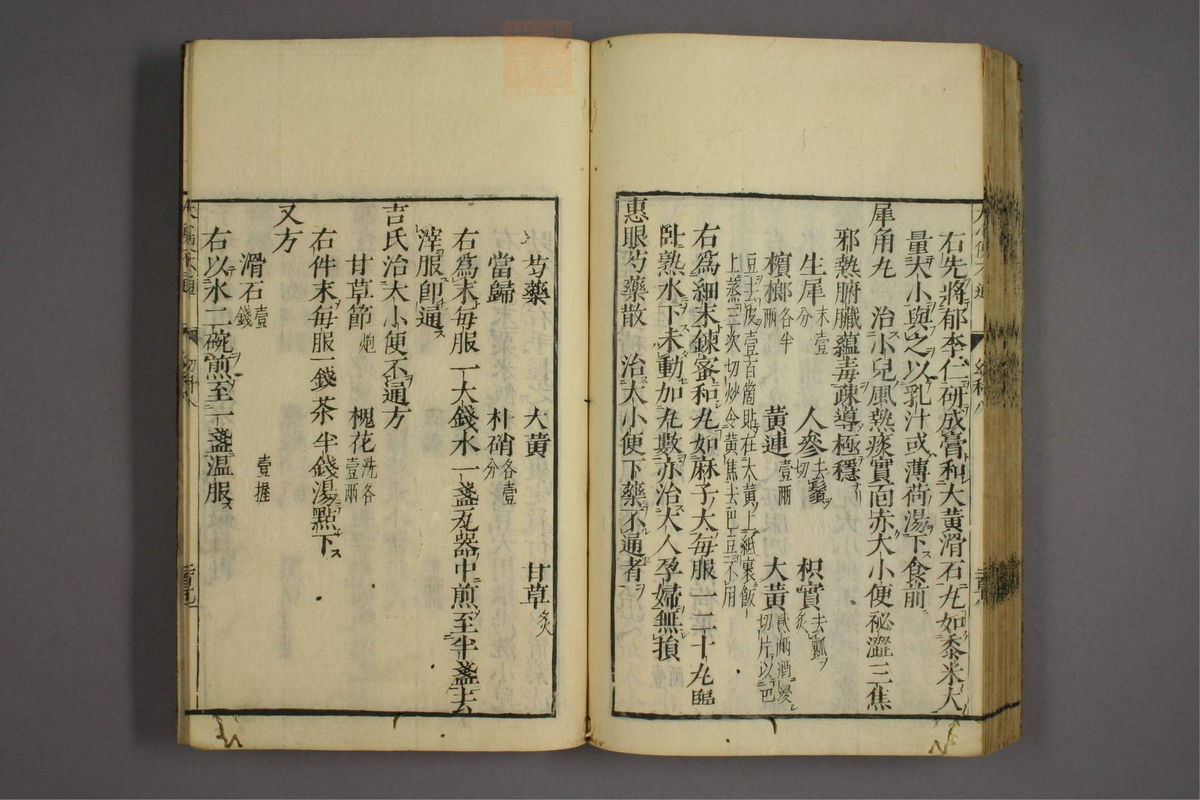 右先將郁李仁研成膏和大黃滑石丸如黍米大
量大小與之以乳汁或薄荷湯下食前
犀角丸　治小兒風熱痰實面赤大小便祕澀三焦
邪熱腑臟蘊毒疎導極穩
生犀末壹分　人參去鬚切　枳實去瓤炙
檳榔各半兩　黃連壹兩　大黃貳兩酒浸切片以巴
豆去皮壹百箇貼在大黃上紙裹飯
上蒸三次切炒令黃焦去巴豆不用
右爲細末鍊蜜和丸如麻子大每服一二十丸臨
臥熟水下未動加丸數亦治大人孕婦無損
惠眼芍藥散　治大小便下藥不通者
芍藥　大黃　甘草炙
當歸　朴硝各壹分
右爲末每服一大錢水一盞瓦器中煎至半盞去
滓服卽通
吉氏治大小便不通方
甘草節炮　槐花洗各壹兩
右件末每服一錢茶半錢湯點下
又方
滑石壹錢　壹握
右以水二碗煎至一盞溫服